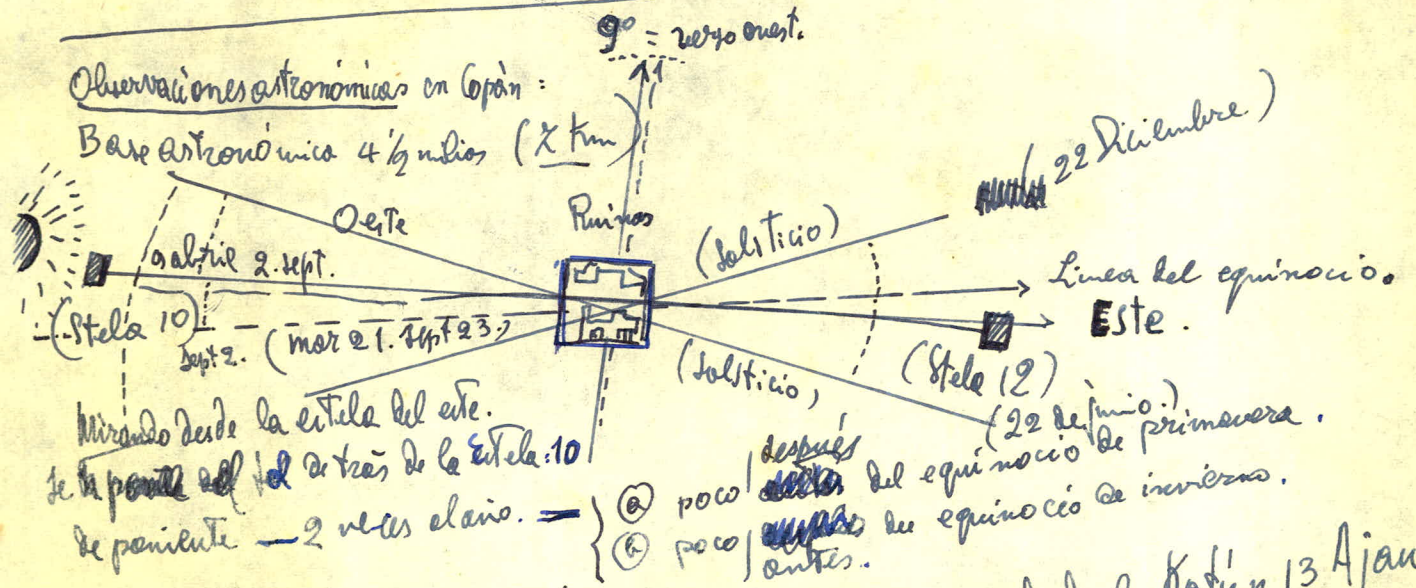 9° = verso ouest.
Observaciones astronómicas en Copán:
Base astronómica 4 ½ millas (7 Km)
22 Diciembre)
Oeste
Ruinas
(Solsticio)
9 abril 2. sept.
Linea del equinocio.
Este.
(Stela 10)
Sept 2. (mar 21. sept 23.)
(Solsticio,
(Stela 12)
(22 de junio.)
Mirando desde la estela del este.
se pone el sol detrás de la Estela:10
de poniente — 2 veces al año. =
a poco después del equinocio de primavera.
b poco antes. del equinocio de invierno.
Katún 13 Ajau